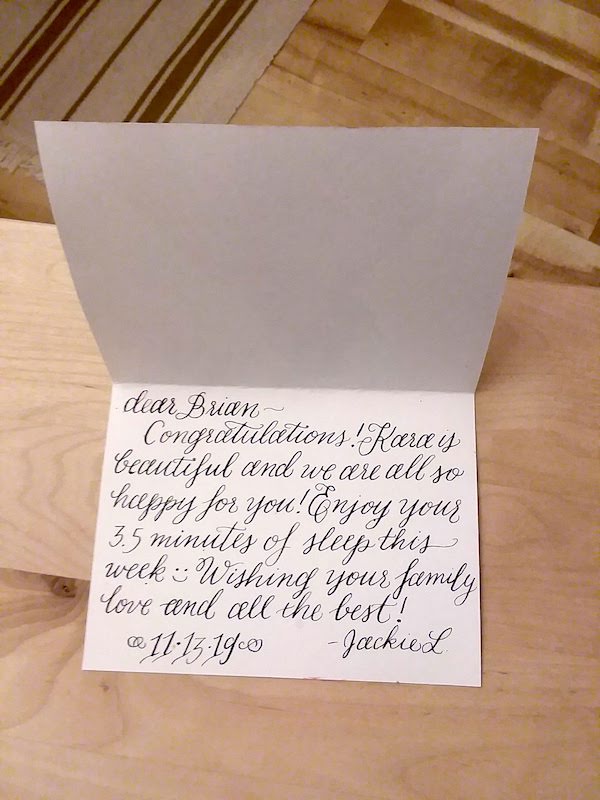 dear Brian~
Congratulations! Kara is
beautiful and we are all so
happy for you! Enjoy your
3.5 minutes of sleep this
week :) Wishing your family
love and all the best!
11·13·19 -Jackie L.